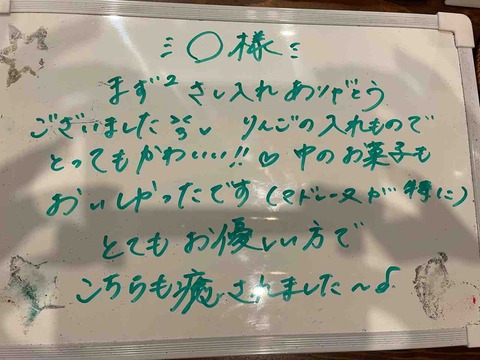 〇様
まず² さし入れありがとう
ございました りんごの入れもので
とってもかわいい!!♡ 中のお菓子も
おいしかったです(マドレーヌが特に)
とてもお優しい方で
こちらも癒されました〜♪